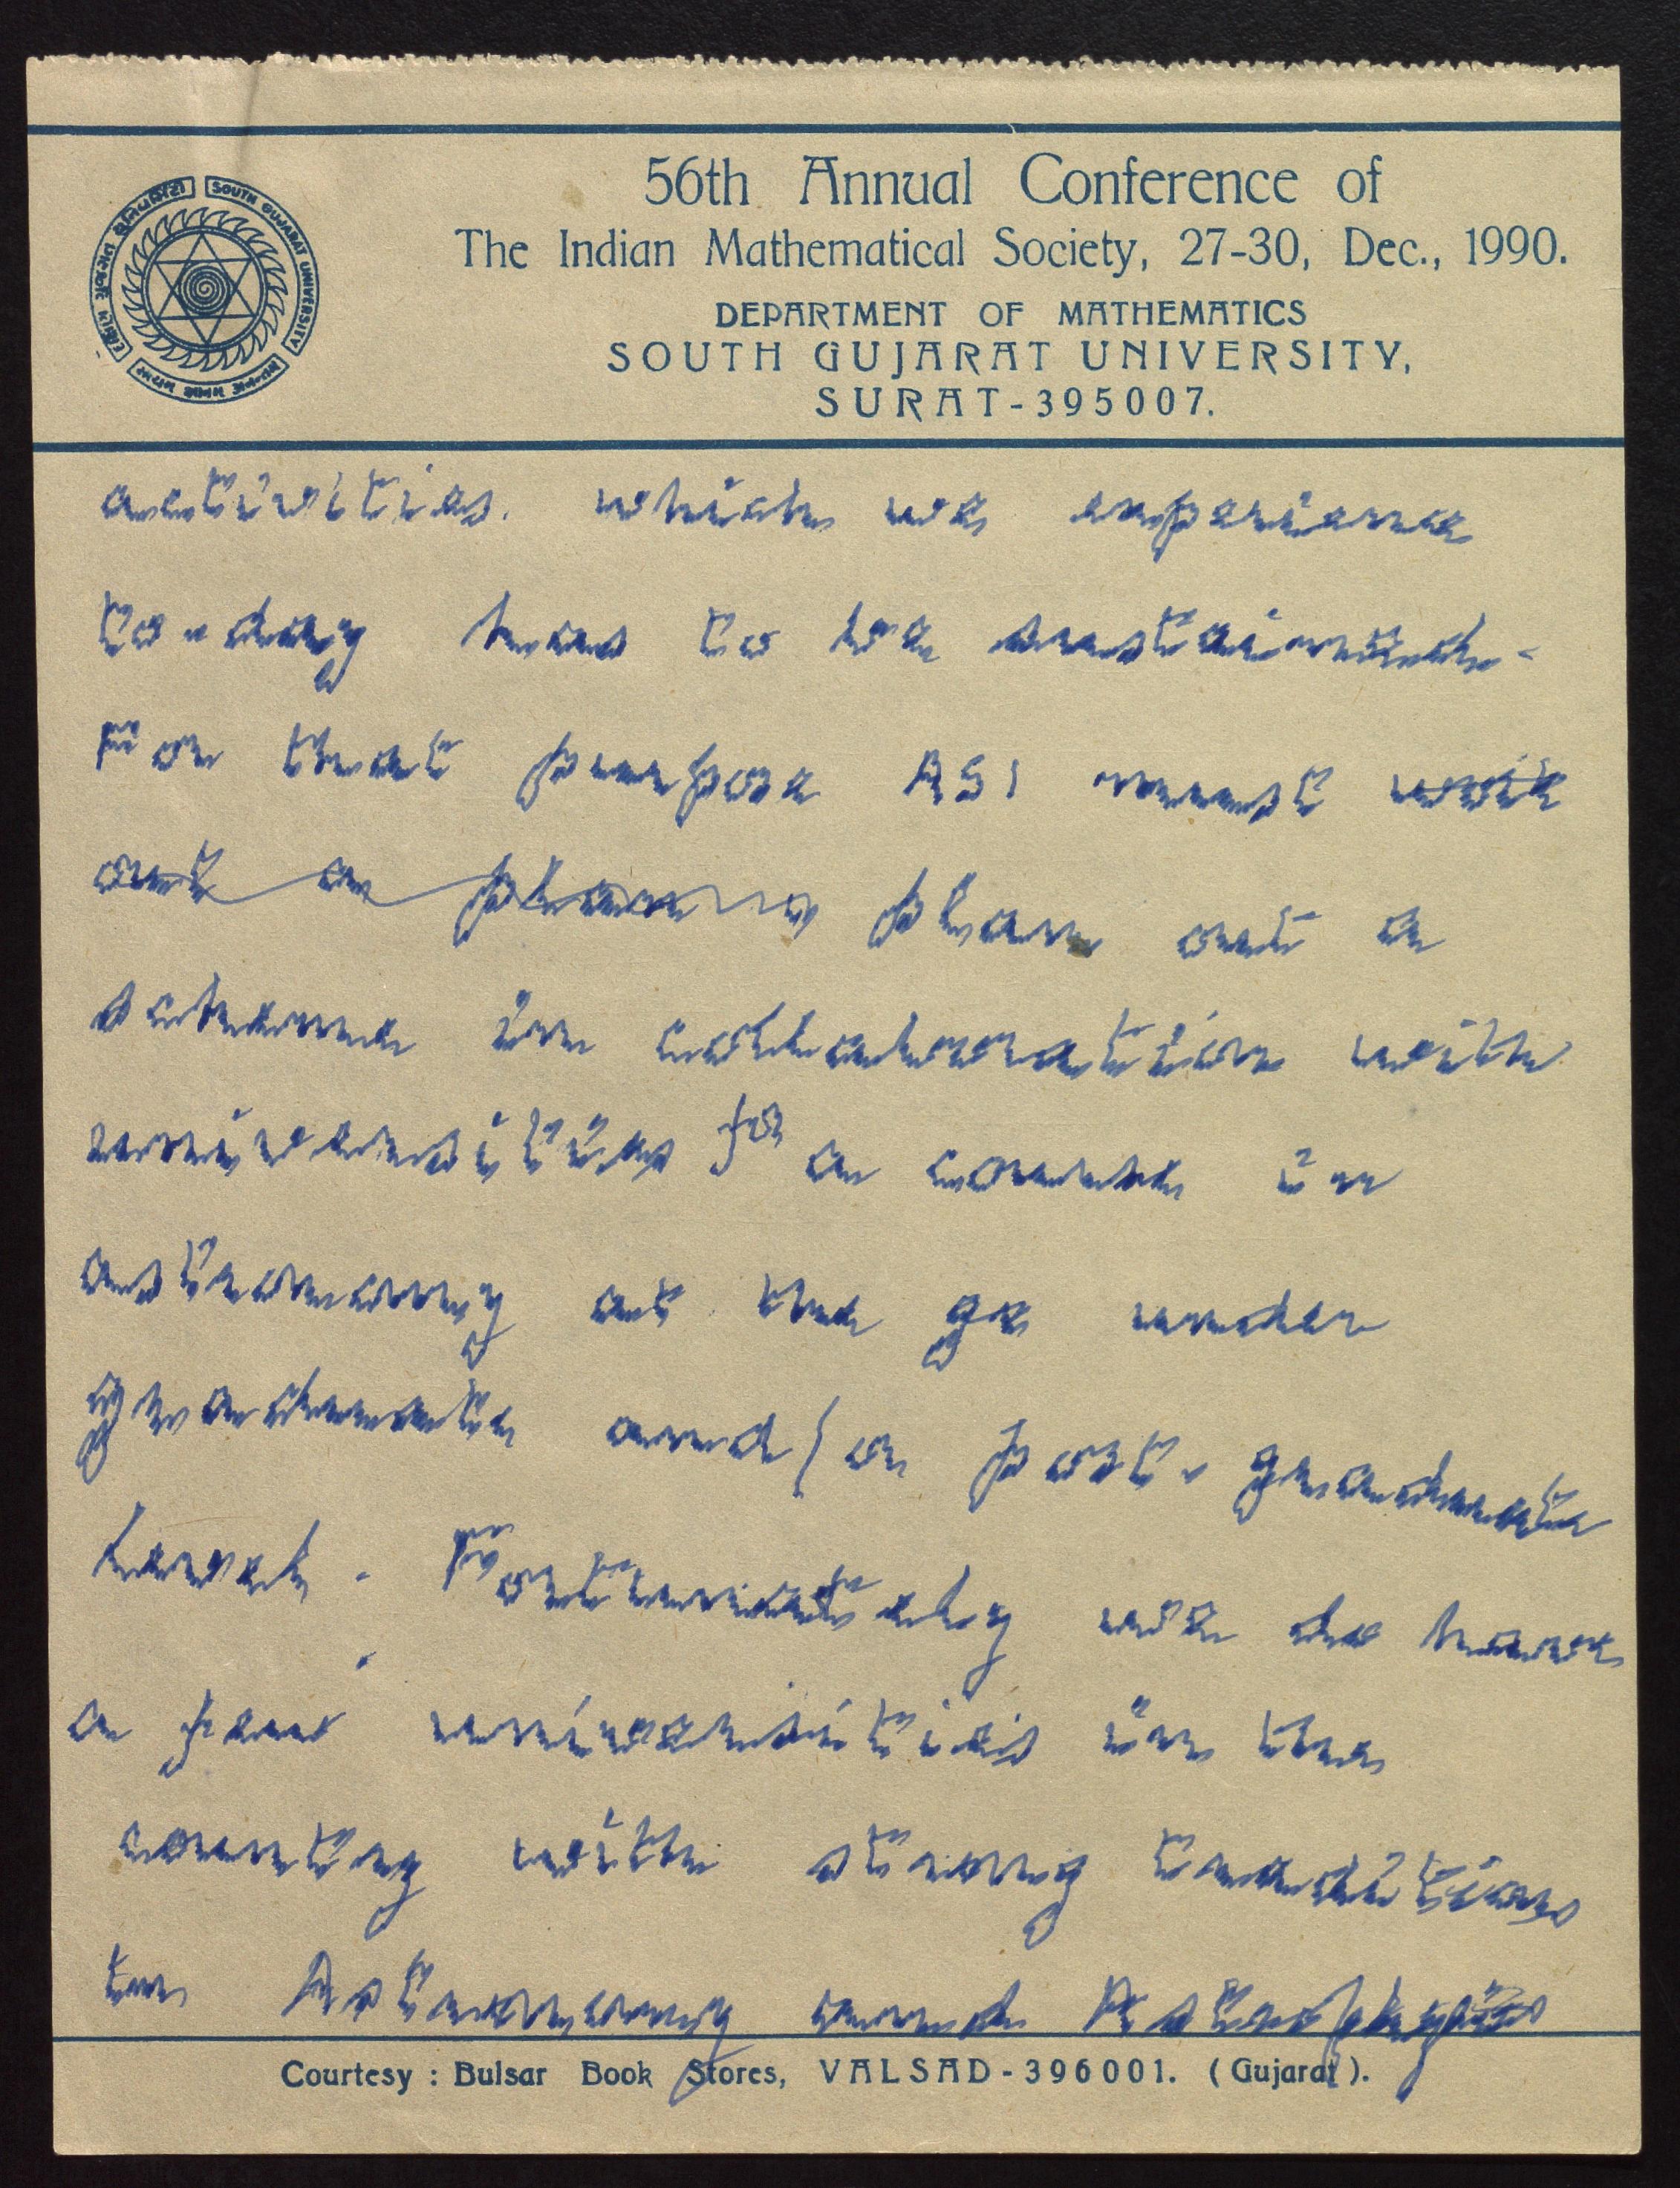 56th Annual Conference of
The Indian Mathematical Society, 27-30, Dec., 1990.
DEPARTMENT OF MATHEMATICS
SOUTH GUJARAT UNIVERSITY,
SURAT-395007.
SOUTH GUJARAT UNIVERSITY
activities. which we experience
to-day has to be sustained-
For that purpose ASI must work
out a plan plan out a
scheme in collaboration with
universities for a course in
astronomy at the ge under
graduate and/or post-graduate
level. Fortunately we do have
a few universities in the
country with strong traditions
in Astronomy and Astrophysics
Courtesy : Bulsar Book Stores, VALSAD-396001. (Gujarat).